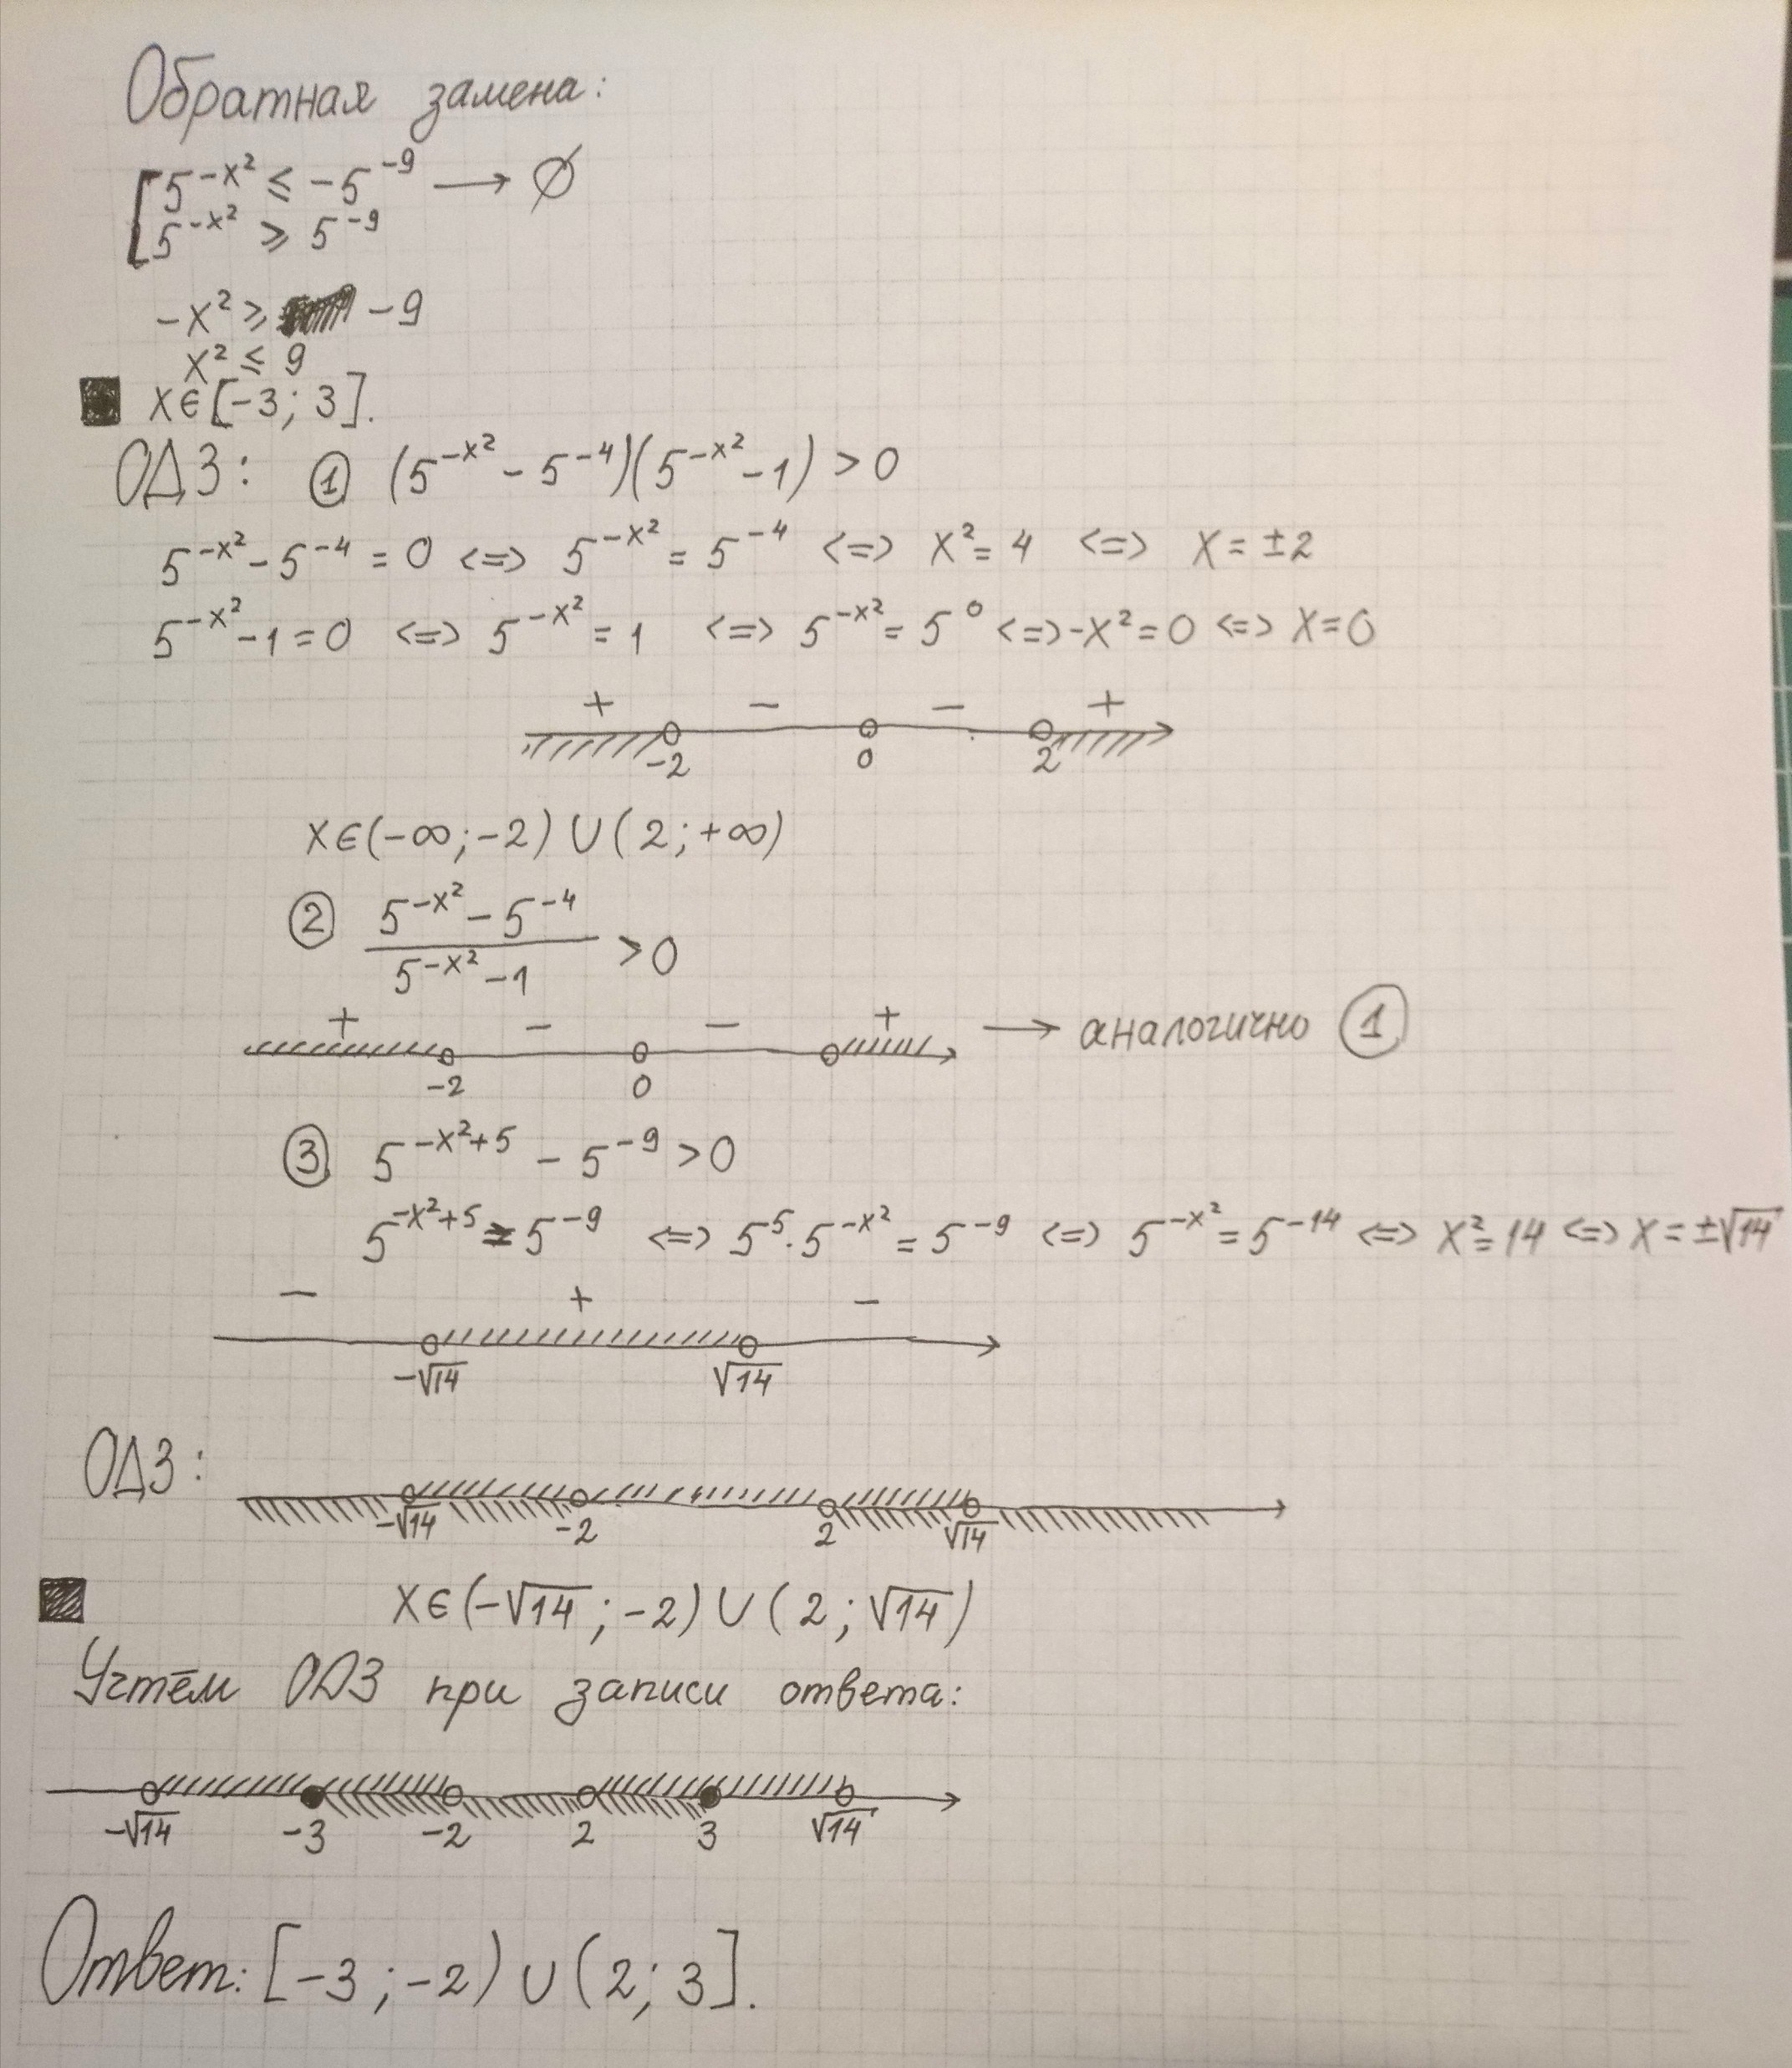 Обратная замена:
[5^{-x²} ≤ -5^{-9} → ∅
5^{-x²} ≥ 5^{-9}
-x² ≥ -9
x² ≤ 9
x∈[-3; 3].
ОДЗ: ① (5^{-x²} - 5^{-4})(5^{-x²} - 1) > 0
5^{-x²} - 5^{-4} = 0 <=> 5^{-x²} = 5^{-4} <=> x² = 4 <=> x = ±2
5^{-x²} - 1 = 0 <=> 5^{-x²} = 1 <=> 5^{-x²} = 5^0 <=> -x² = 0 <=> x = 0
+ - - +
-2 0 2
x∈(-∞; -2) ∪ (2; +∞)
② (5^{-x²} - 5^{-4})/(5^{-x²} - 1) > 0
+ - - + → аналогично ①
-2 0
③ 5^{-x²+5} - 5^{-9} > 0
5^{-x²+5} = 5^{-9} <=> 5^5 · 5^{-x²} = 5^{-9} <=> 5^{-x²} = 5^{-14} <=> x² = 14 <=> x = ±√14
- + -
-√14 √14
ОДЗ:
-√14 -2 2 √14
x∈(-√14; -2) ∪ (2; √14)
Учтём ОДЗ при записи ответа:
-√14 -3 -2 2 3 √14
Ответ: [-3; -2) ∪ (2; 3].